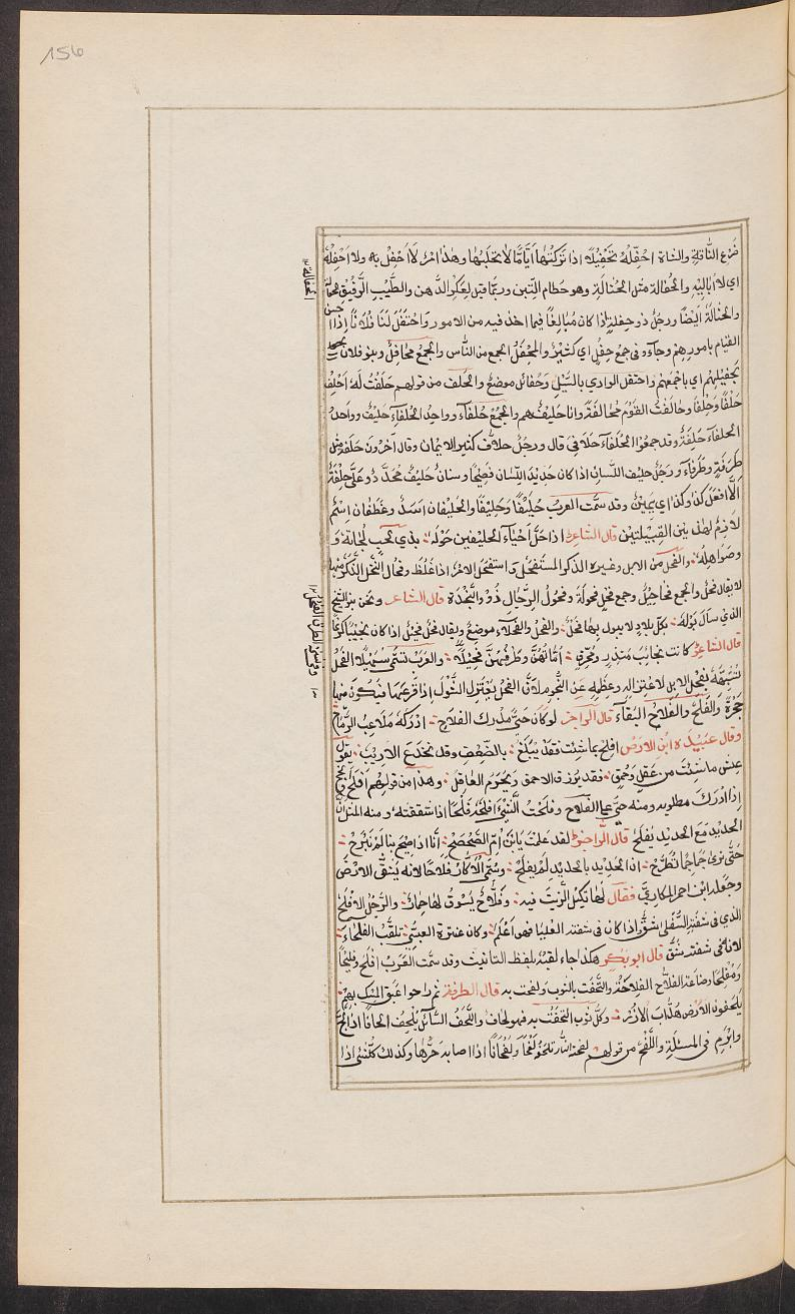 156
ضرع الناقة والشاة احفّله تحفيلا اذا تركتها اياما لا تحلبها وهذا امر لا احفل به ولا احفله
اي لا اباليه والحفالة مثل الحثالة وهو حطام التبن وربما قيل لعكر الدهن والطيب الرقيق حفالة
والحثالة ايضا ورجل ذو حفلة اذا كان مبالغا فيما اخذ فيه من الامور واحتفل لنا فلان اذا احسن
القيام بامورهم وجاءوا في جمع حفل اي كثير والمحفل الجمع من الناس والجمع محافل وبنو فلان
بحفيلهم اي باجمعهم واحتفل الوادي بالسيل وحفائل موضع والحلف من قولهم حلفت له احلف
حلفا وحلفا وحالفت القوم محالفة وانا حليف لهم والجمع حلفاء وواحد الحلفاء حليف وواحد
الحلفاء حلفة وقد جمعوا الحلفاء حلافي قال ورجل حلاف كثير الايمان وقال آخرون حلفة مثل
طرفة وطرفاء ورجل حليف اللسان اذا كان حديد اللسان فصيحا وسنان حليف محدد وعلي حلفة
الا افعل كذا وكذا اي يمين وقد سمت العرب حليفا وحليفا والحليفان اسد وغطفان اسم
لازم لهذا بين القبيلتين قال الشاعر اذا حل احياء الحليفين حوله بذي لجب لجاته و
صواهله والفحل من الابل وغيره الذكر المستفحل واستفحل الامر اذا غلظ وفحال النخل الذكر منها
لا يقال فحل والجمع فحاحيل وجمع فحل فحولة وفحول الرجال ذوو النجدة قال الشاعر ونحن بنو الشيخ
الذي سال بوله بكل بلاد لا يبول بها فحل والفحل والفحلاء موضع ويقال فحل فحيل اذا كان نجيبا كريما
قال الشاعر كانت نجائب منذر ومحرق اماتهن وطرقهن فحيلا والعرب تسمي سهيلا الفحل
تشبهه بفحل الابل لاعتزاله وعظمه عن النجوم لان الفحل يعتزل الشول اذا قرعها فيكون منها
حجرة والفلح والفلاح البقاء قال الراجز لو كان حي مدرك الفلاح ادركه ملاعب الرماح
وقال عبيد بن الابرص افلح بما شئت فقد يبلغ بالضعف وقد يخدع الاريب يقول
عش ما شئت من عقل وحمق فقد يرزق الاحمق ويحرم العاقل وهذا من قولهم افلح وانجح
اذا ادرك مطلوبه ومنه حي على الفلاح وفلحت الشيء افلحه فلحا اذا شققته ومنه المثل ان
الحديد مع الحديد يفلح قال الراجز لقد علمت يا بن ام الصحصح انا اذا صيح بنا لم نبرح
حتى نرى جماجما تطرح اذا الحديد بالحديد لم يفلح وسمي الاكار فلاحا لانه يشق الارض
وجعله ابن احمر المكاري فقال لها كيل الزيت فيه وفلاح يسوق لها حمارا والرجل الافلح
الذي في شفته السفلى شق واذا كان في شفته العليا فهو اعلم وكان عنترة العبسي تلقب الفلحاء
لانه في شفته شق قال ابو بكر هكذا جاء لقبه بلفظ التانيث وقد سمت العرب افلح وفليحا
ومفلحا والتحفت بالثوب ولحفت به قال الطرفة ثم راحوا عبق المسك بهم
يلحفون الارض هداب الازر وكل ثوب التحفت به فهو لحاف والحف السائل يلحف الحافا اذا الح
وابرم في المسئلة واللفح من قولهم لفحته النار تلفحه لفحا ولفحانا اذا اصابه حرها وكذلك كل شيء اذا